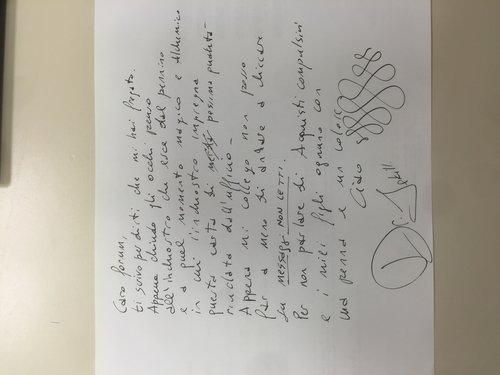 Caro forum,
ti scrivo per dirti che mi hai fregato.
Appena chiudo gli occhi penso
all'inchiostro che esce dal pennino
e a quel momento magico e alchemico
in cui l'inchiostro impregna
questa carta di pessima qualità
rinciata dall'ufficio.
Appena mi collego non posso
fare a meno di andare a cliccare
su messaggi NON LETTI.
Per non parlare di Acquisti compulsivi
e i miei figli ognuno con
una penna e un colore
Ciao